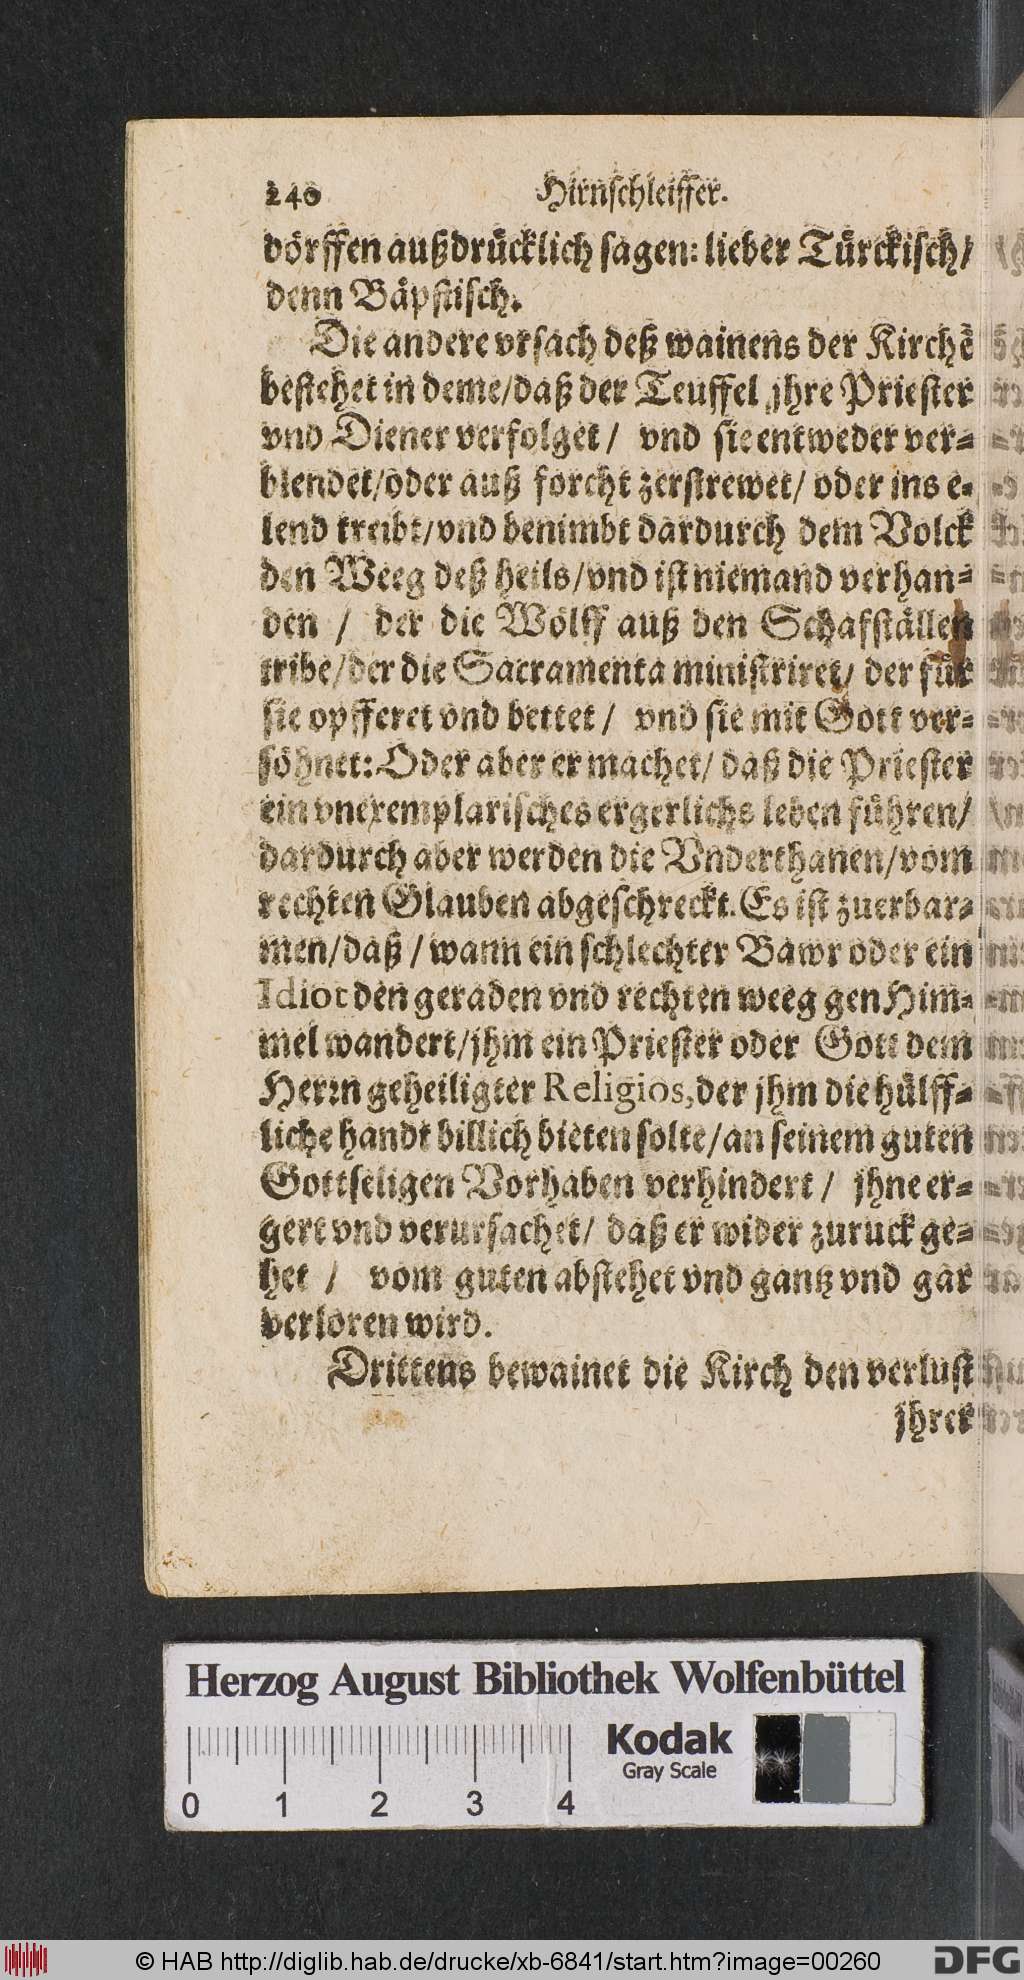 240 Hirnschleiffer.
dörffen außdrücklich sagen: lieber Türckisch/
denn Bäpstisch.
Die andere vrsach deß wainens der Kirchẽ
bestehet in deme/daß der Teuffel jhre Priester
vnd Diener verfolget / vnd sie entweder ver-
blendet/oder auß forcht zerstrewet/ oder ins e-
lend treibt/vnd benimbt dardurch dem Volck
den Weeg deß heils/vnd ist niemand verhan-
den / der die Wölff auß den Schafställen
tribe/der die Sacramenta ministriret/ der für
sie opfferet vnd bettet / vnd sie mit Gott ver-
söhnet: Oder aber er machet/ daß die Priester
ein vnexemplarisches ergerlichs leben führen/
dardurch aber werden die Vnderthanen/vom
rechten Glauben abgeschreckt. Es ist zuerbar-
men/daß / wann ein schlechter Bawr oder ein
Idiot den geraden vnd rechten weeg gen Him-
mel wandert/jhm ein Priester oder Gott dem
Herrn geheiligter Religios, der jhm die hülff-
liche handt billich bieten solte/an seinem guten
Gottseligen Vorhaben verhindert / jhne er-
gert vnd verursachet/ daß er wider zuruck ge-
het / vom guten abstehet vnd gantz vnd gar
verloren wird.
Drittens bewainet die Kirch den verlust
jhrer
Herzog August Bibliothek Wolfenbüttel
Kodak
Gray Scale
0 1 2 3 4
© HAB http://diglib.hab.de/drucke/xb-6841/start.htm?image=00260
DFG